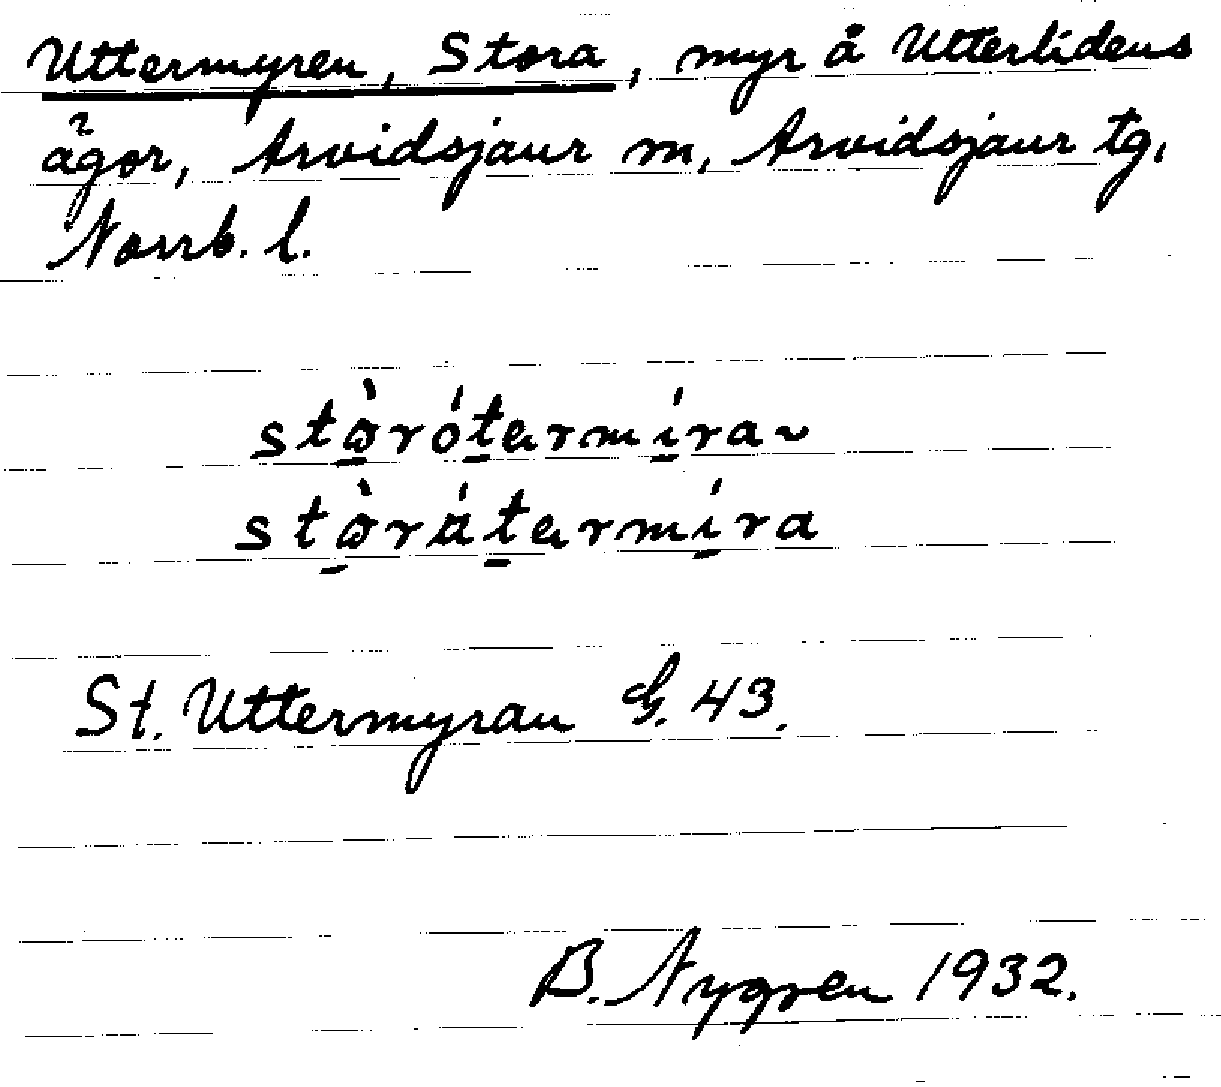 Uttermyren, Stora, myr å Utterlidens
ägor, Arvidsjaur sn, Arvidsjaur tg,
Norrb. l.
stὼ̱róṯərmí̱ra~
stὼ̱ráṯərmí̱ra
St. Uttermyran G. 43.
B. Nygren 1932.